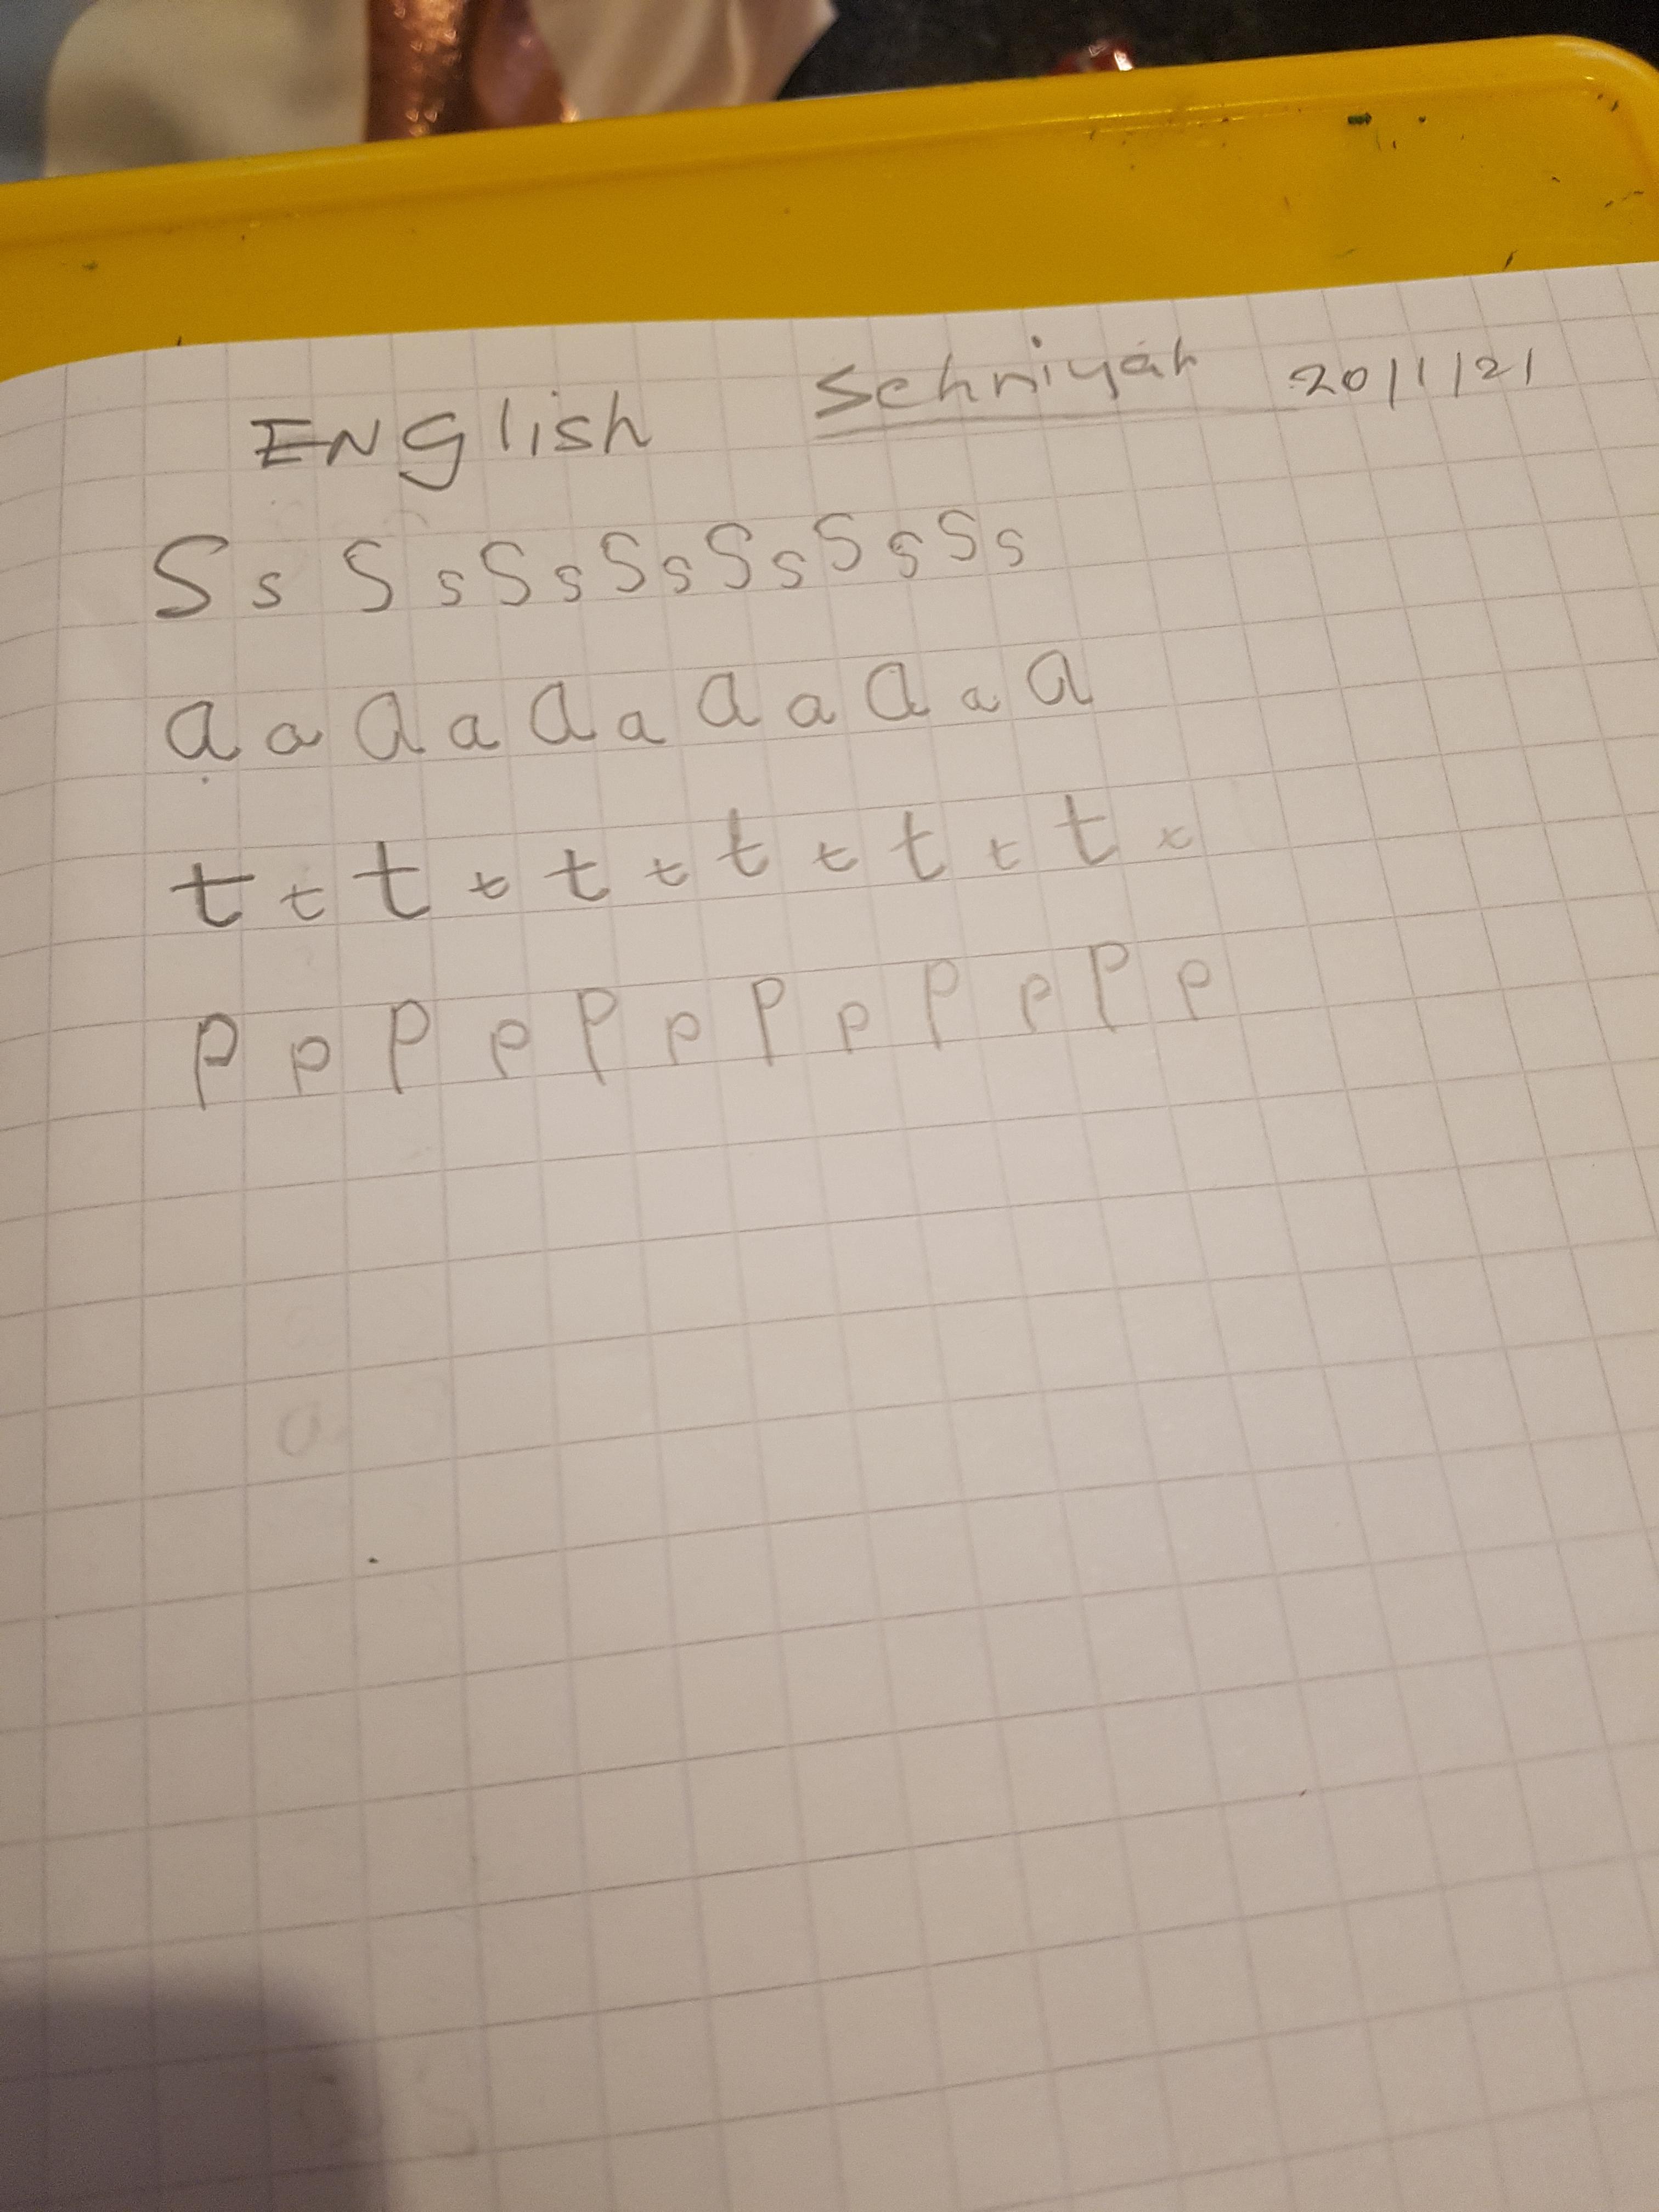 ENglish Sehniyah 20/1/21
S s S s S s S s S s S s S s
a a a a a a a a a a a
t t t t t t t t t t t t
P p P p P p P p P p P p